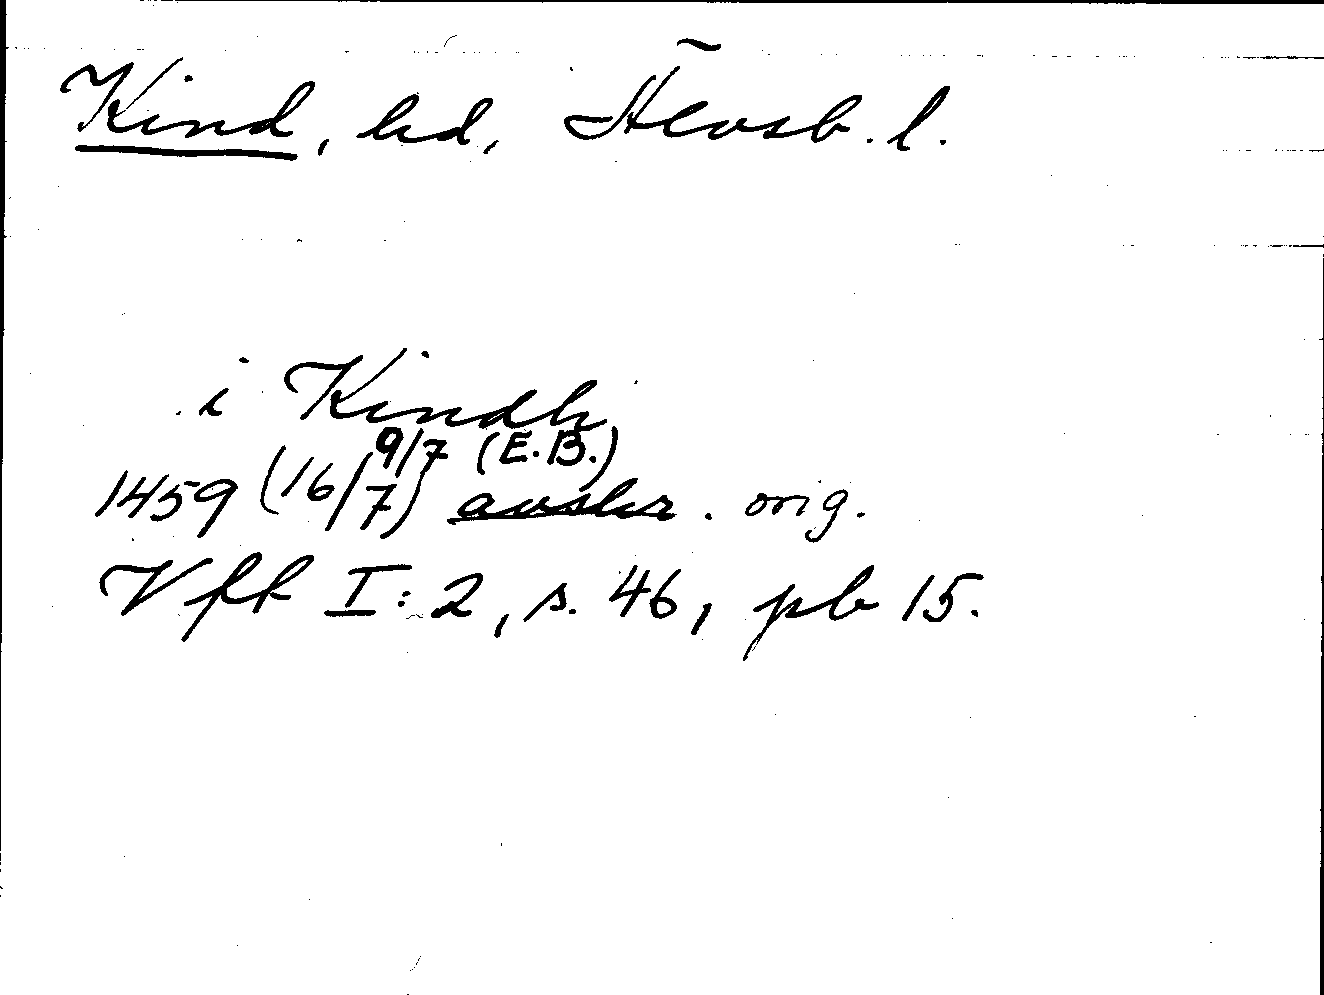 Kind, hd, Älvsb. l.
i Kindh
9/7 (E.B.)
1459 (16/7) avskr. orig.
Vft I:2, s. 46, pb 15.